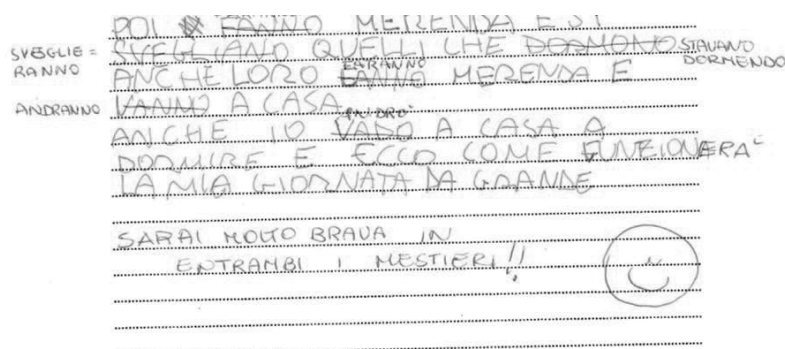 POI FANNO MERENDA E SI
SVEGLIE= SVEGLIANO QUELLI CHE DORMONO STAVANO
RANNO ANCHE LORO FANNO FARANNO MERENDA E DORMENDO
ANDRANNO VANNO A CASA
ANCHE IO VADO ANDRO' A CASA A
DORMIRE E ECCO COME FUNZIONERA'
LA MIA GIORNATA DA GRANDE
SARAI MOLTO BRAVA IN
ENTRAMBI I MESTIERI!!